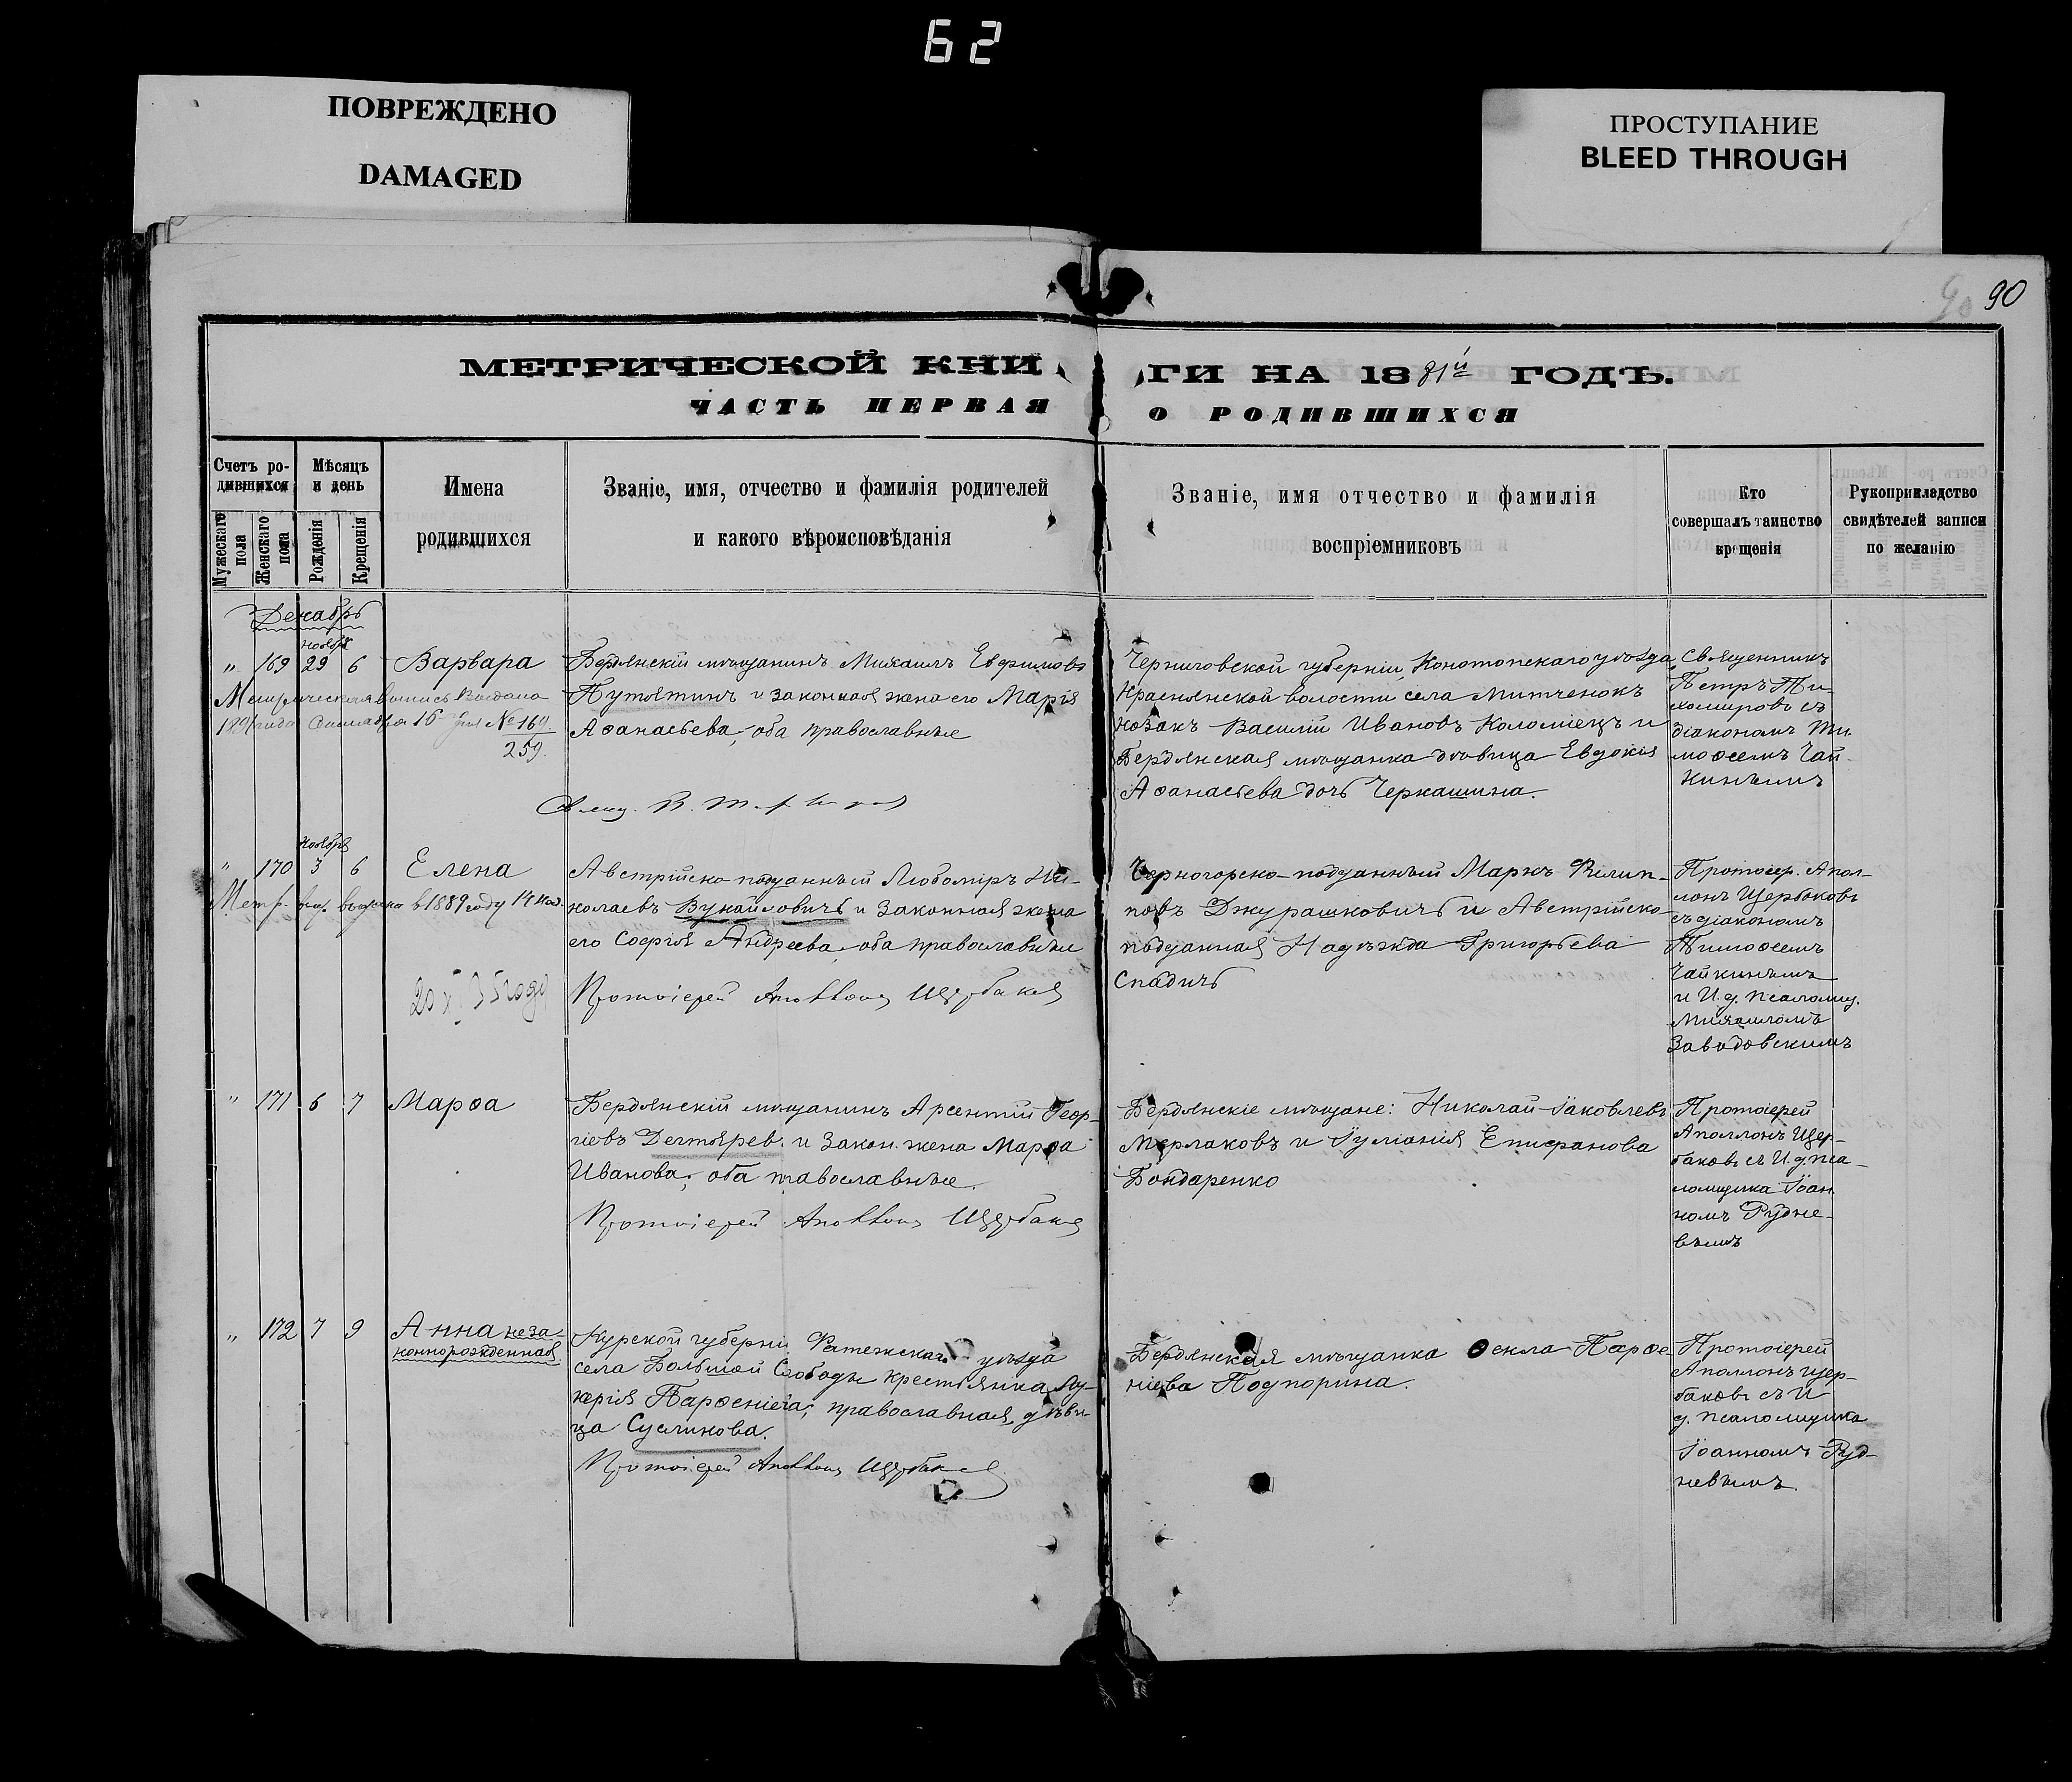 62
ПОВРЕЖДЕНО
DAMAGED
ПРОСТУПАНИЕ
BLEED THROUGH
90
90
МЕТРИЧЕСКОЙ КНИ
ГИ НА 1881й ГОДЪ.
ЧАСТЬ ПЕРВАЯ
О РОДИВШИХСЯ
Счетъ ро-
дившихся
Мужескаго пола
Женскаго пола
Мѣсяцъ
и день
Рожденія
Крещенія
Имена
родившихся
Званіе, имя, отчество и фамилія родителей
и какого вѣроисповѣданія
Званіе, имя отчество и фамилія
воспріемниковъ
Кто
совершалъ таинство
крещенія
Рукоприкладство
свидѣтелей записи
по желанію
Декабрь
ноября
" 169 29 6 Варвара
Метрическая выпись выдана
189 года Сентября 16 дня № 169
259.
Бердянскій мѣщанинъ Михаилъ Евфимовъ
Путятинъ и законная жена его Марія
Аѳанасьева, оба православные
Свящ. П. Тихомировъ
Черниговской губерніи, Конотопскаго уѣзда,
Краснянской волости села Митченокъ
козакъ Василій Ивановъ Коломіецъ и
Бердянская мѣщанка дѣвица Евдокія
Аѳанасьева дочь Черкашина.
Священникъ
Петръ Ти-
хомировъ съ
діакономъ Ти-
моѳеемъ Чай-
кинымъ
ноября
" 170 3 6 Елена
Метр. вып. выдана в 1889 году 14
Австрійско-подданный Любоміръ Ни-
колаевъ Вукайловичъ и законная жена
его Софія Андреева, оба православные
Протоіерей Аполлонъ Щербаковъ
Черногорско-подданный Маркъ Филип-
повъ Джурашковичъ и Австрійско-
подданная Надѣжда Григорьева
Спадичъ
Протоіер. Апол-
лонъ Щербаковъ
съ діакономъ
Тимоѳеемъ
Чайкинымъ
и И. д. псаломщ.
Михаиломъ
Заводовскимъ
" 171 6 7 Марѳа
Бердянскій мѣщанинъ Арсентій Геор-
гіевъ Дегтярев. и Закон. жена Марѳа
Иванова, оба православные.
Протоіерей Аполлонъ Щербаковъ
Бердянскіе мѣщане: Николай Іаковлевъ
Мерлаковъ и Іуліанія Епифанова
Бондаренко
Протоіерей
Аполлонъ Щер-
баковъ съ И. д. пса-
ломщика Іоан-
номъ Рудне-
вымъ
" 172 7 9 Анна неза-
коннорожденная
Курской губерніи Фатежскаго уѣзда
села Большой Слободы крестьянка Лу-
керія Парѳеніева, православная, дѣви-
ца Суслинова.
Протоіерей Аполлонъ Щербаковъ
Бердянская мѣщанка Ѳекла Парѳе-
ніева Подпорина.
Протоіерей
Аполлонъ Щер-
баковъ съ И
д. псаломщика
Іоанномъ Руд-
невымъ.